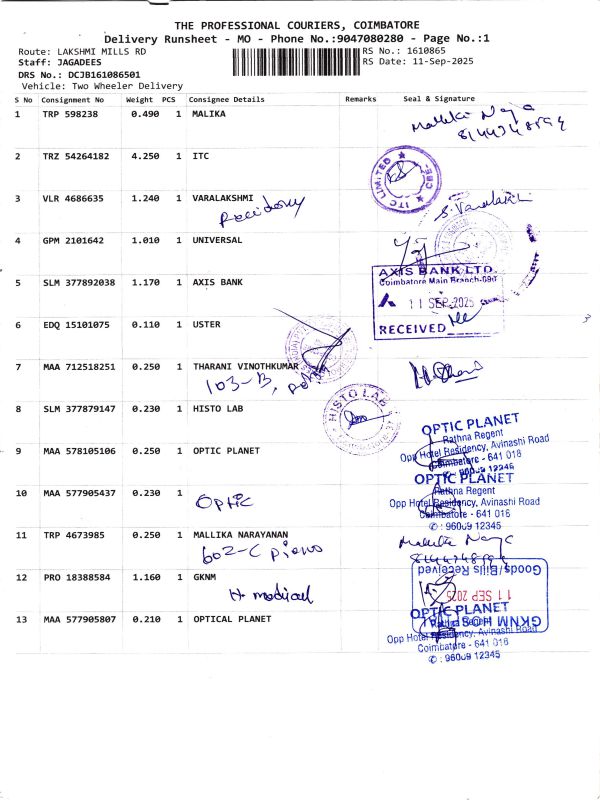 THE PROFESSIONAL COURIERS, COIMBATORE
Delivery Runsheet - MO - Phone No.:9047080280 - Page No.:1
Route: LAKSHMI MILLS RD
RS No.: 1610865
Staff: JAGADEES
RS Date: 11-Sep-2025
DRS No.: DCJB161086501
Vehicle: Two Wheeler Delivery
S No Consignment No Weight PCS Consignee Details Remarks Seal & Signature
1 TRP 598238 0.490 1 MALIKA
2 TRZ 54264182 4.250 1 ITC
ITC LIMITED
3 VLR 4686635 1.240 1 VARALAKSHMI
S. Varalakshmi
4 GPM 2101642 1.010 1 UNIVERSAL
5 SLM 377892038 1.170 1 AXIS BANK
AXIS BANK LTD.
Coimbatore Main Branch-090
11 SEP 2025
RECEIVED
6 EDQ 15101075 0.110 1 USTER
7 MAA 712518251 0.250 1 THARANI VINOTHKUMAR
103-B,
8 SLM 377879147 0.230 1 HISTO LAB
HISTO LAB
9 MAA 578105106 0.250 1 OPTIC PLANET
OPTIC PLANET
Rathna Regent
Opp Hotel Residency, Avinashi Road
Coimbatore - 641 018
✆ : 96009 12345
10 MAA 577905437 0.230 1
Optic
OPTIC PLANET
Rathna Regent
Opp Hotel Residency, Avinashi Road
Coimbatore - 641 018
✆ : 96009 12345
11 TRP 4673985 0.250 1 MALLIKA NARAYANAN
602-C piano
12 PRO 18388584 1.160 1 GKNM
H medical
Goods/Bills Received
11 SEP 2025
GKNM HOSPITAL
13 MAA 577905807 0.210 1 OPTICAL PLANET
OPTIC PLANET
Rathna Regent
Opp Hotel Residency, Avinashi Road
Coimbatore - 641 018
✆ : 96009 12345